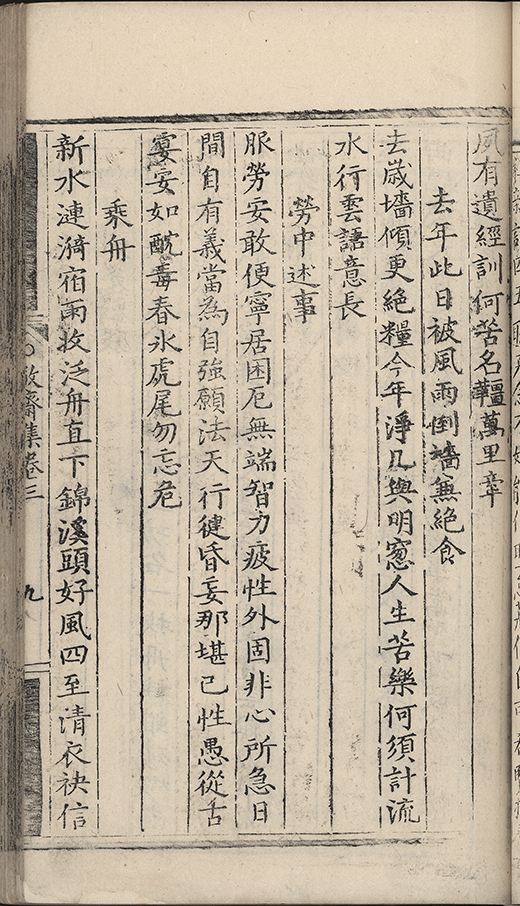 夙有遺經訓何苦名韁萬里牽
去年此日被風雨倒墻兼絶食
去歲墻傾更絶糧今年淨几與明窓人生苦樂何須計流
水行雲語意長
勞中述事
服勞安敢便寧居困厄無端智力疲性外固非心所急日
間自有義當為自強願法天行健昏妄那堪己性愚從古
宴安如酖毒春氷虎尾勿忘危
乘舟
新水漣漪宿雨收泛舟直下錦溪頭好風四至清衣袂信
敬齋集卷三
九